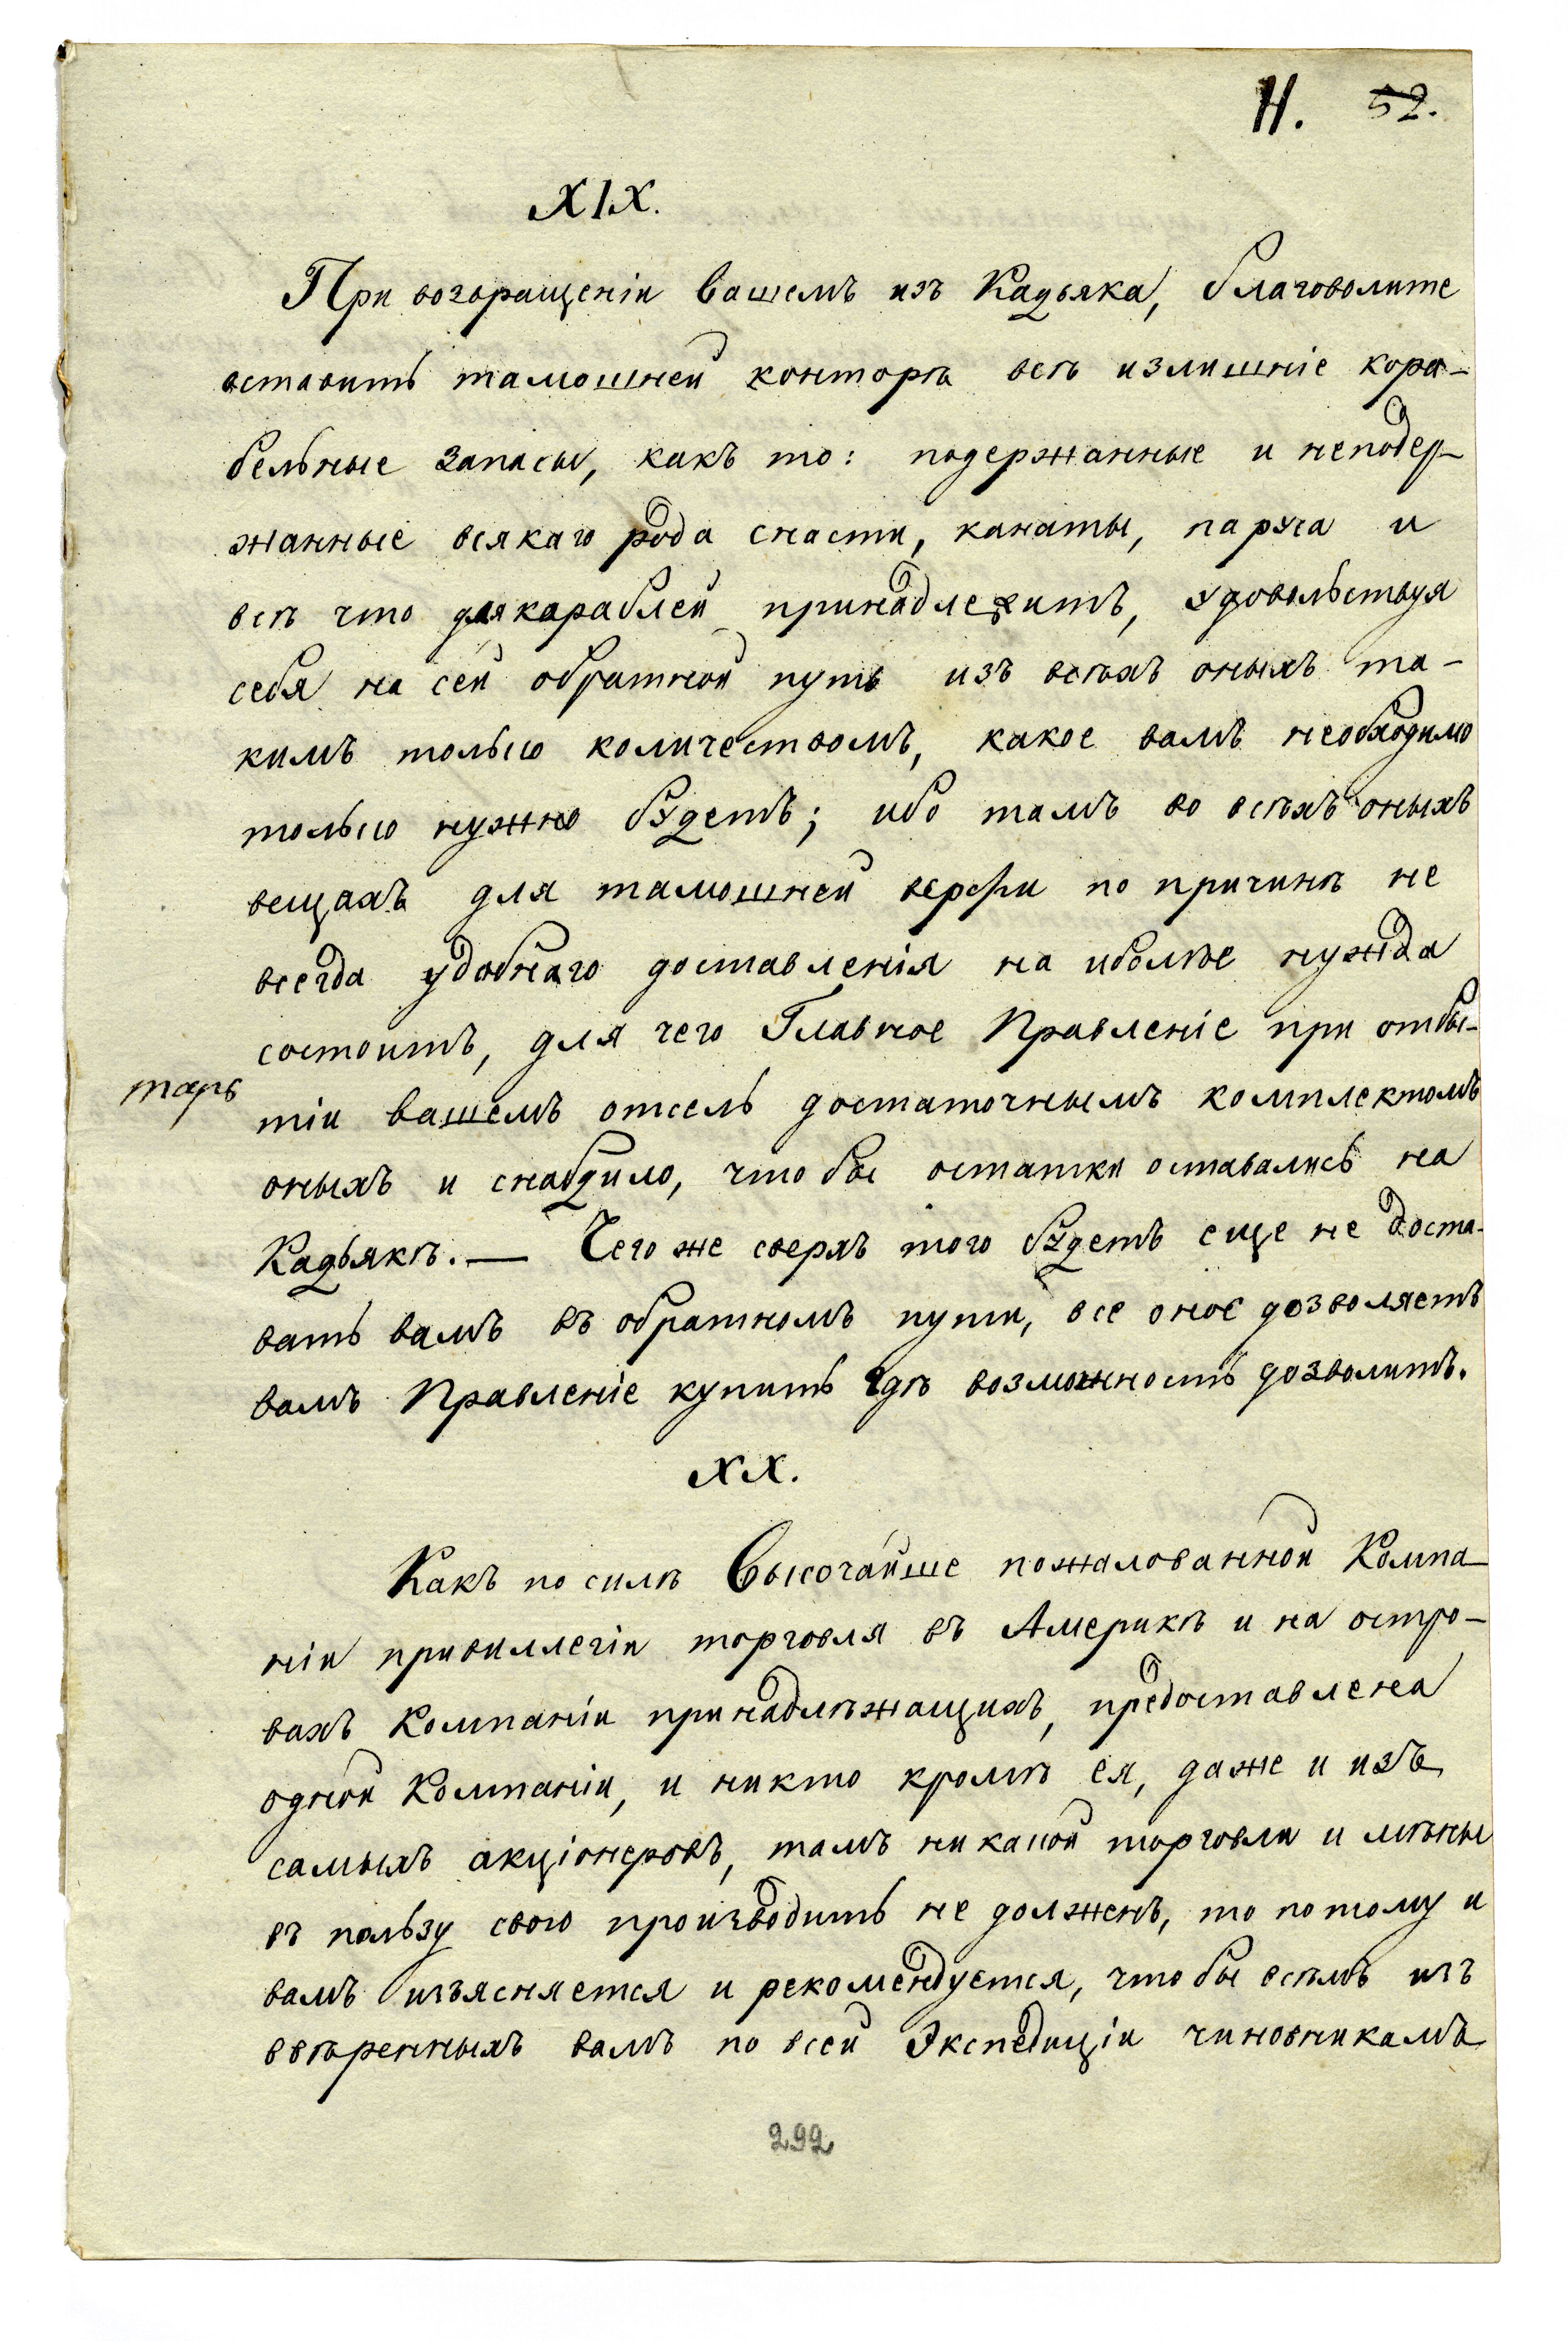 Н. 52.
XIX.
При возвращеніи вашемъ изъ Кадьяка, благоволите
оставить тамошней конторѣ всѣ излишніе кора-
бельные запасы, какъ то: подержанные и неподер-
жанные всякаго рода снасти, канаты, паруса и
всѣ что для караблей принадлежитъ, удовольствуя
себя на сей обратной путь изъ всѣхъ оныхъ та-
кимъ только количествомъ, какое вамъ необходимо
только нужно будетъ; ибо тамъ во всѣхъ оныхъ
вещахъ для тамошней верфи по причинѣ не
всегда удобнаго доставленія на иболѣе нужда
состоитъ, для чего Главное Правленіе при отбы-
тіи вашемъ отсель достаточнымъ комплектомъ
оныхъ и снабдило, что бы остатки оставались на
Кадьякѣ. — Чего же сверхъ того будетъ еще не доста-
вать вамъ въ обратномъ пути, все оное дозволяетъ
вамъ Правленіе купить гдѣ возможность дозволитъ.
XX.
Какъ по силѣ Высочайше пожалованной Компа-
ніи привиллегіи торговля въ Америкѣ и на остро-
вахъ Компаніи принадлѣжащихъ, предоставлена
одной Компаніи, и никто кромѣ ея, даже и изъ
самыхъ акціонеровъ, тамъ никакой торговли и мѣны
въ пользу свою производить не долженъ, то потому и
вамъ изъясняется и рекомендуется, что бы всѣмъ изъ
ввѣренныхъ вамъ по всей Экспедиціи чиновникамъ
292